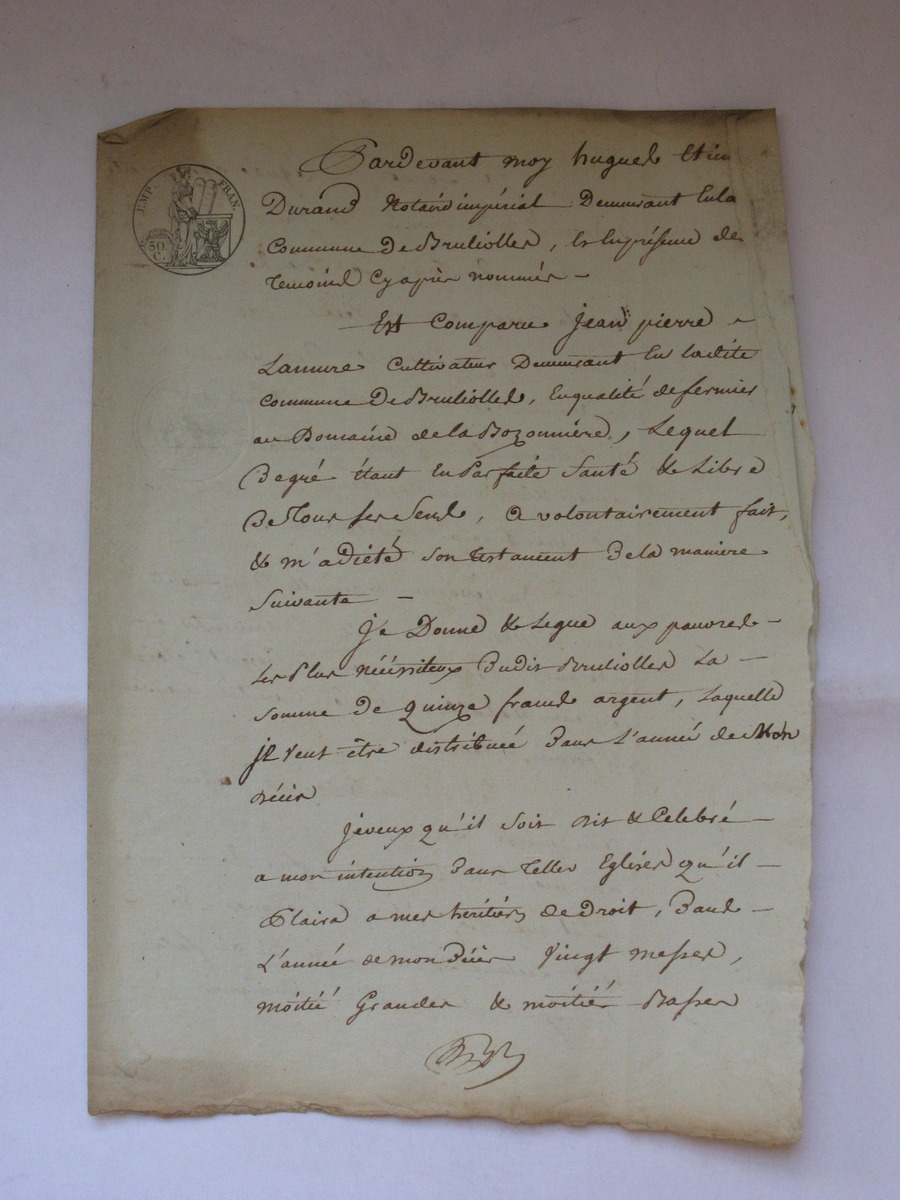 EMP. FRAN.
50. C.
Pardevant moy hugues Etien
Durand Notaire impérial Demeurant Enla
Commune De Brulioller, & Enprésence des
Temoins Cyaprès nommés -
Est Comparu Jean pierre -
Lamure Cultivateur Demeurant En ladite
Commune De Bruliolles, Enqualité de fermier
au Domaine de la Bozonnière, Lequel
Degré étant En Parfaite Santé & Libre
De Tous ses Sens, a volontairement fait,
& m'a dicté son testament De la maniere
Suivante -
Je Donne & Legue aux pauvres -
Les Plus nécéssiteux Dudit Brulioller La -
Somme De quinze francs argent, Laquelle
je Veux être distribuée Dans L'année de Mon
décès
Jeveux qu'il Soit dit & Celebré -
a mon intention Dans Telles Eglises qu'il -
Plaira a mes héritiers de Droit, Dans -
L'année de mon Décès Vingt messes,
moitié Grandes & moitié Basses